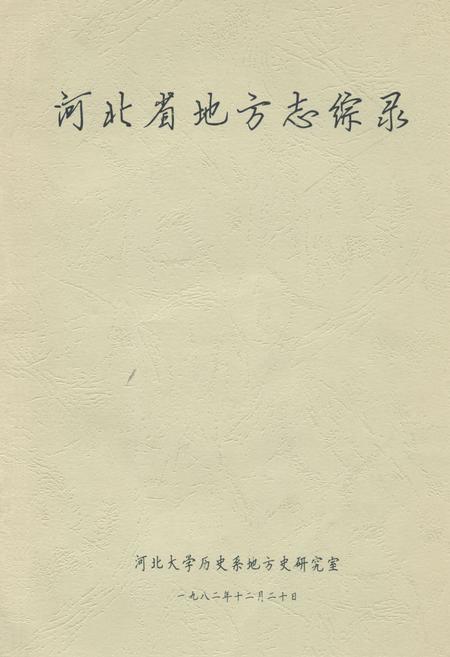 河北省地方志综录
河北大学历史系地方史研究室
一九八二年十二月二十日